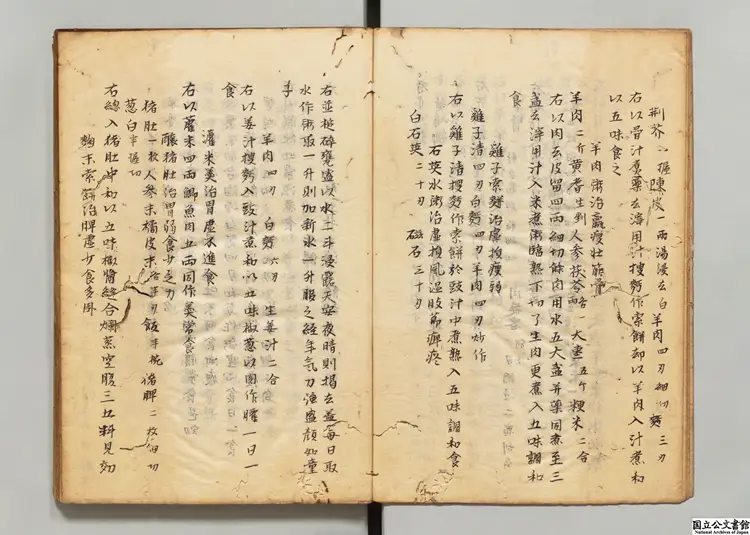 荆芥一握 陳皮一兩湯浸去白 羊肉四刃細切 麪三刃
右以骨汁煮藥去滓用汁搜麪作索餅却以羊肉入汁煮和
以五味食之
羊肉粥治羸瘦壯筋骨
羊肉二斤 黄耆生到 人参 茯苓 大棗五ケ 粳米二合
右以肉去皮留四兩細切餘肉用水五大盞并藥同煮至三
盞去滓用汁入米煮粥臨熟下切了生肉更煮入五味調和
食
雞子索麪治虚損瘦弱
雞子清四刃 白麪四刃 羊肉四刃炒作
右以雞子清搜麪作索餅於豉汁中煮熟入五味調和食
石英水粥治虚損風湿肢節痺疼
白石英二十刃 磁石三十刃
右並搥碎甕盛以水二斗浸露天安夜晴則揭去盖每日取
水作粥取一升則加新水一升服之経年气力強盛顔如童
子
羊肉四刃 白麪六刃 生姜汁二合
右以姜汁搜麪入豉汁煮和以五味椒葱以囲作臛一日一
食
藿米羮治胃虚不進食
右以藿米四兩鯽魚肉五兩同作羮常食
釀猪肚治胃弱食少乏力
猪肚一枚 人参末 橘皮末 飯半椀 猪脾二枚細切
葱白半握切
右総入猪肚中和以五味椒醬縫合爛蒸空腹三五料見効
麹末索餅治脾虚少食多卧
国立公文書館
National Archives of Japan